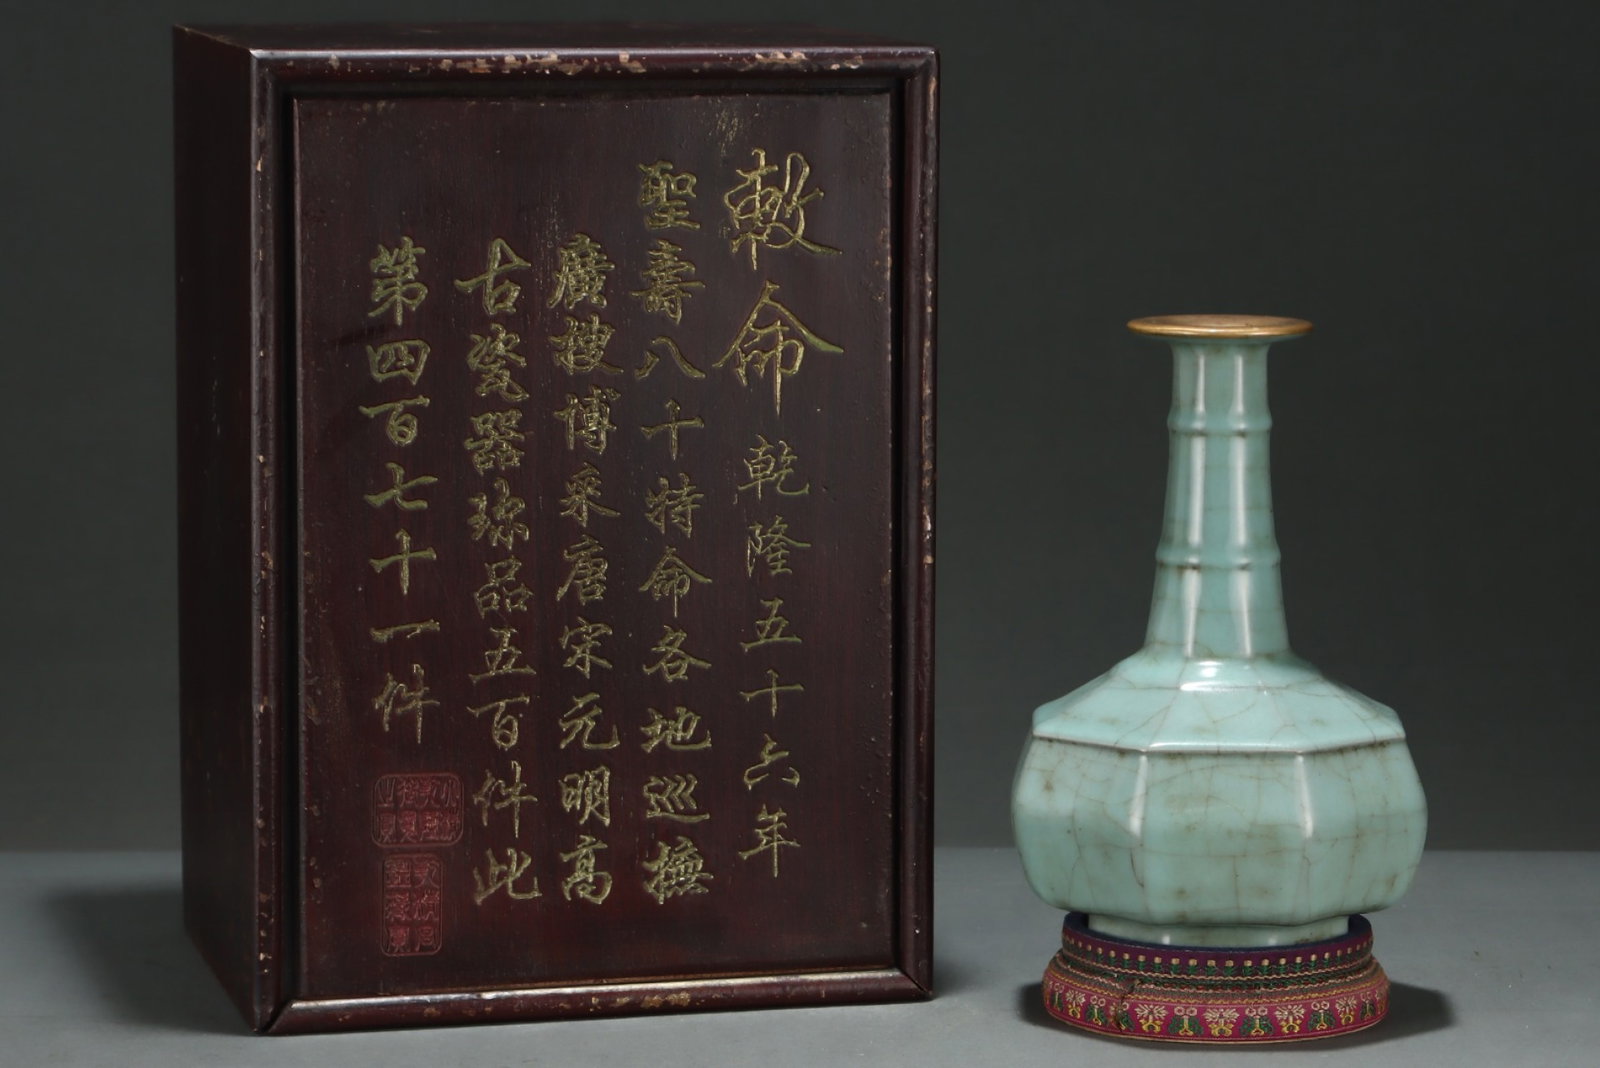 敕命乾隆五十六年
聖壽八十特命各地巡撫
廣搜博采唐宋元明高
古瓷器珍品五百件此
第四百七十一件